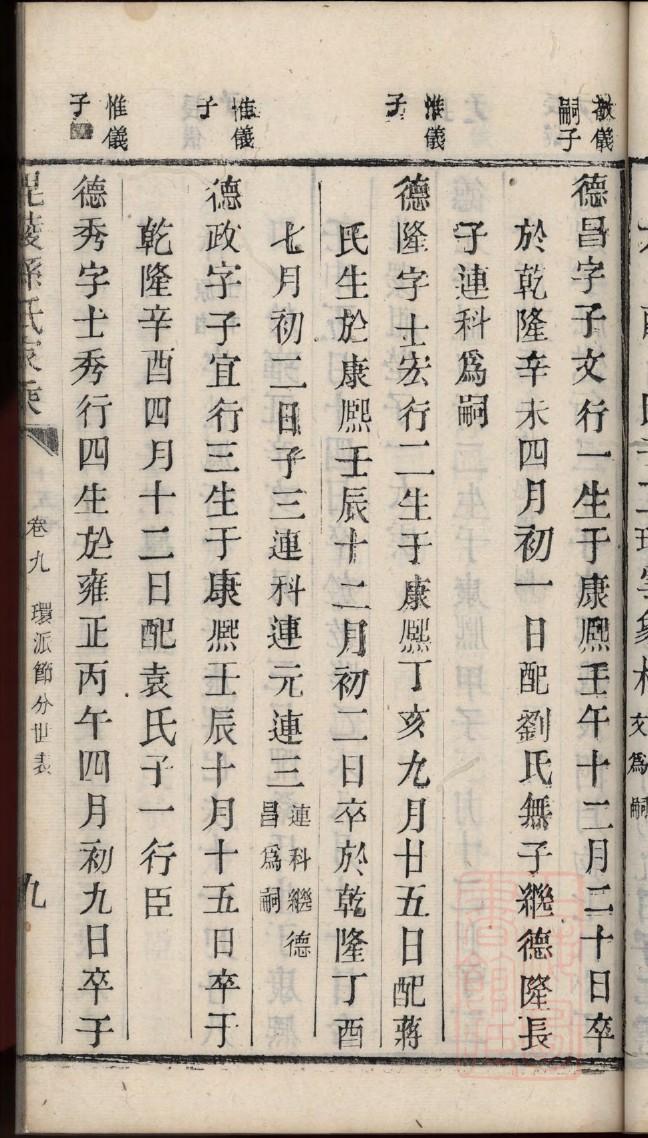 嗣子
德昌字子文行一生于康熈壬午十二月二十日卒
於乾隆辛未四月初一日配劉氏無子繼德隆長
子連科爲嗣
惟儀
子
德隆字士宏行二生于康熈丁亥九月廿五日配蔣
氏生於康熈壬辰十二月初二日卒於乾隆丁酉
七月初二日子三連科連元連三
連科繼德
昌爲嗣
惟儀
子
德政字子宜行三生于康熈壬辰十月十五日卒于
乾隆辛酉四月十二日配袁氏子一行臣
惟儀
子
德秀字士秀行四生於雍正丙午四月初九日卒于
毘陵孫氏家乘
卷九
環派節分世表
九